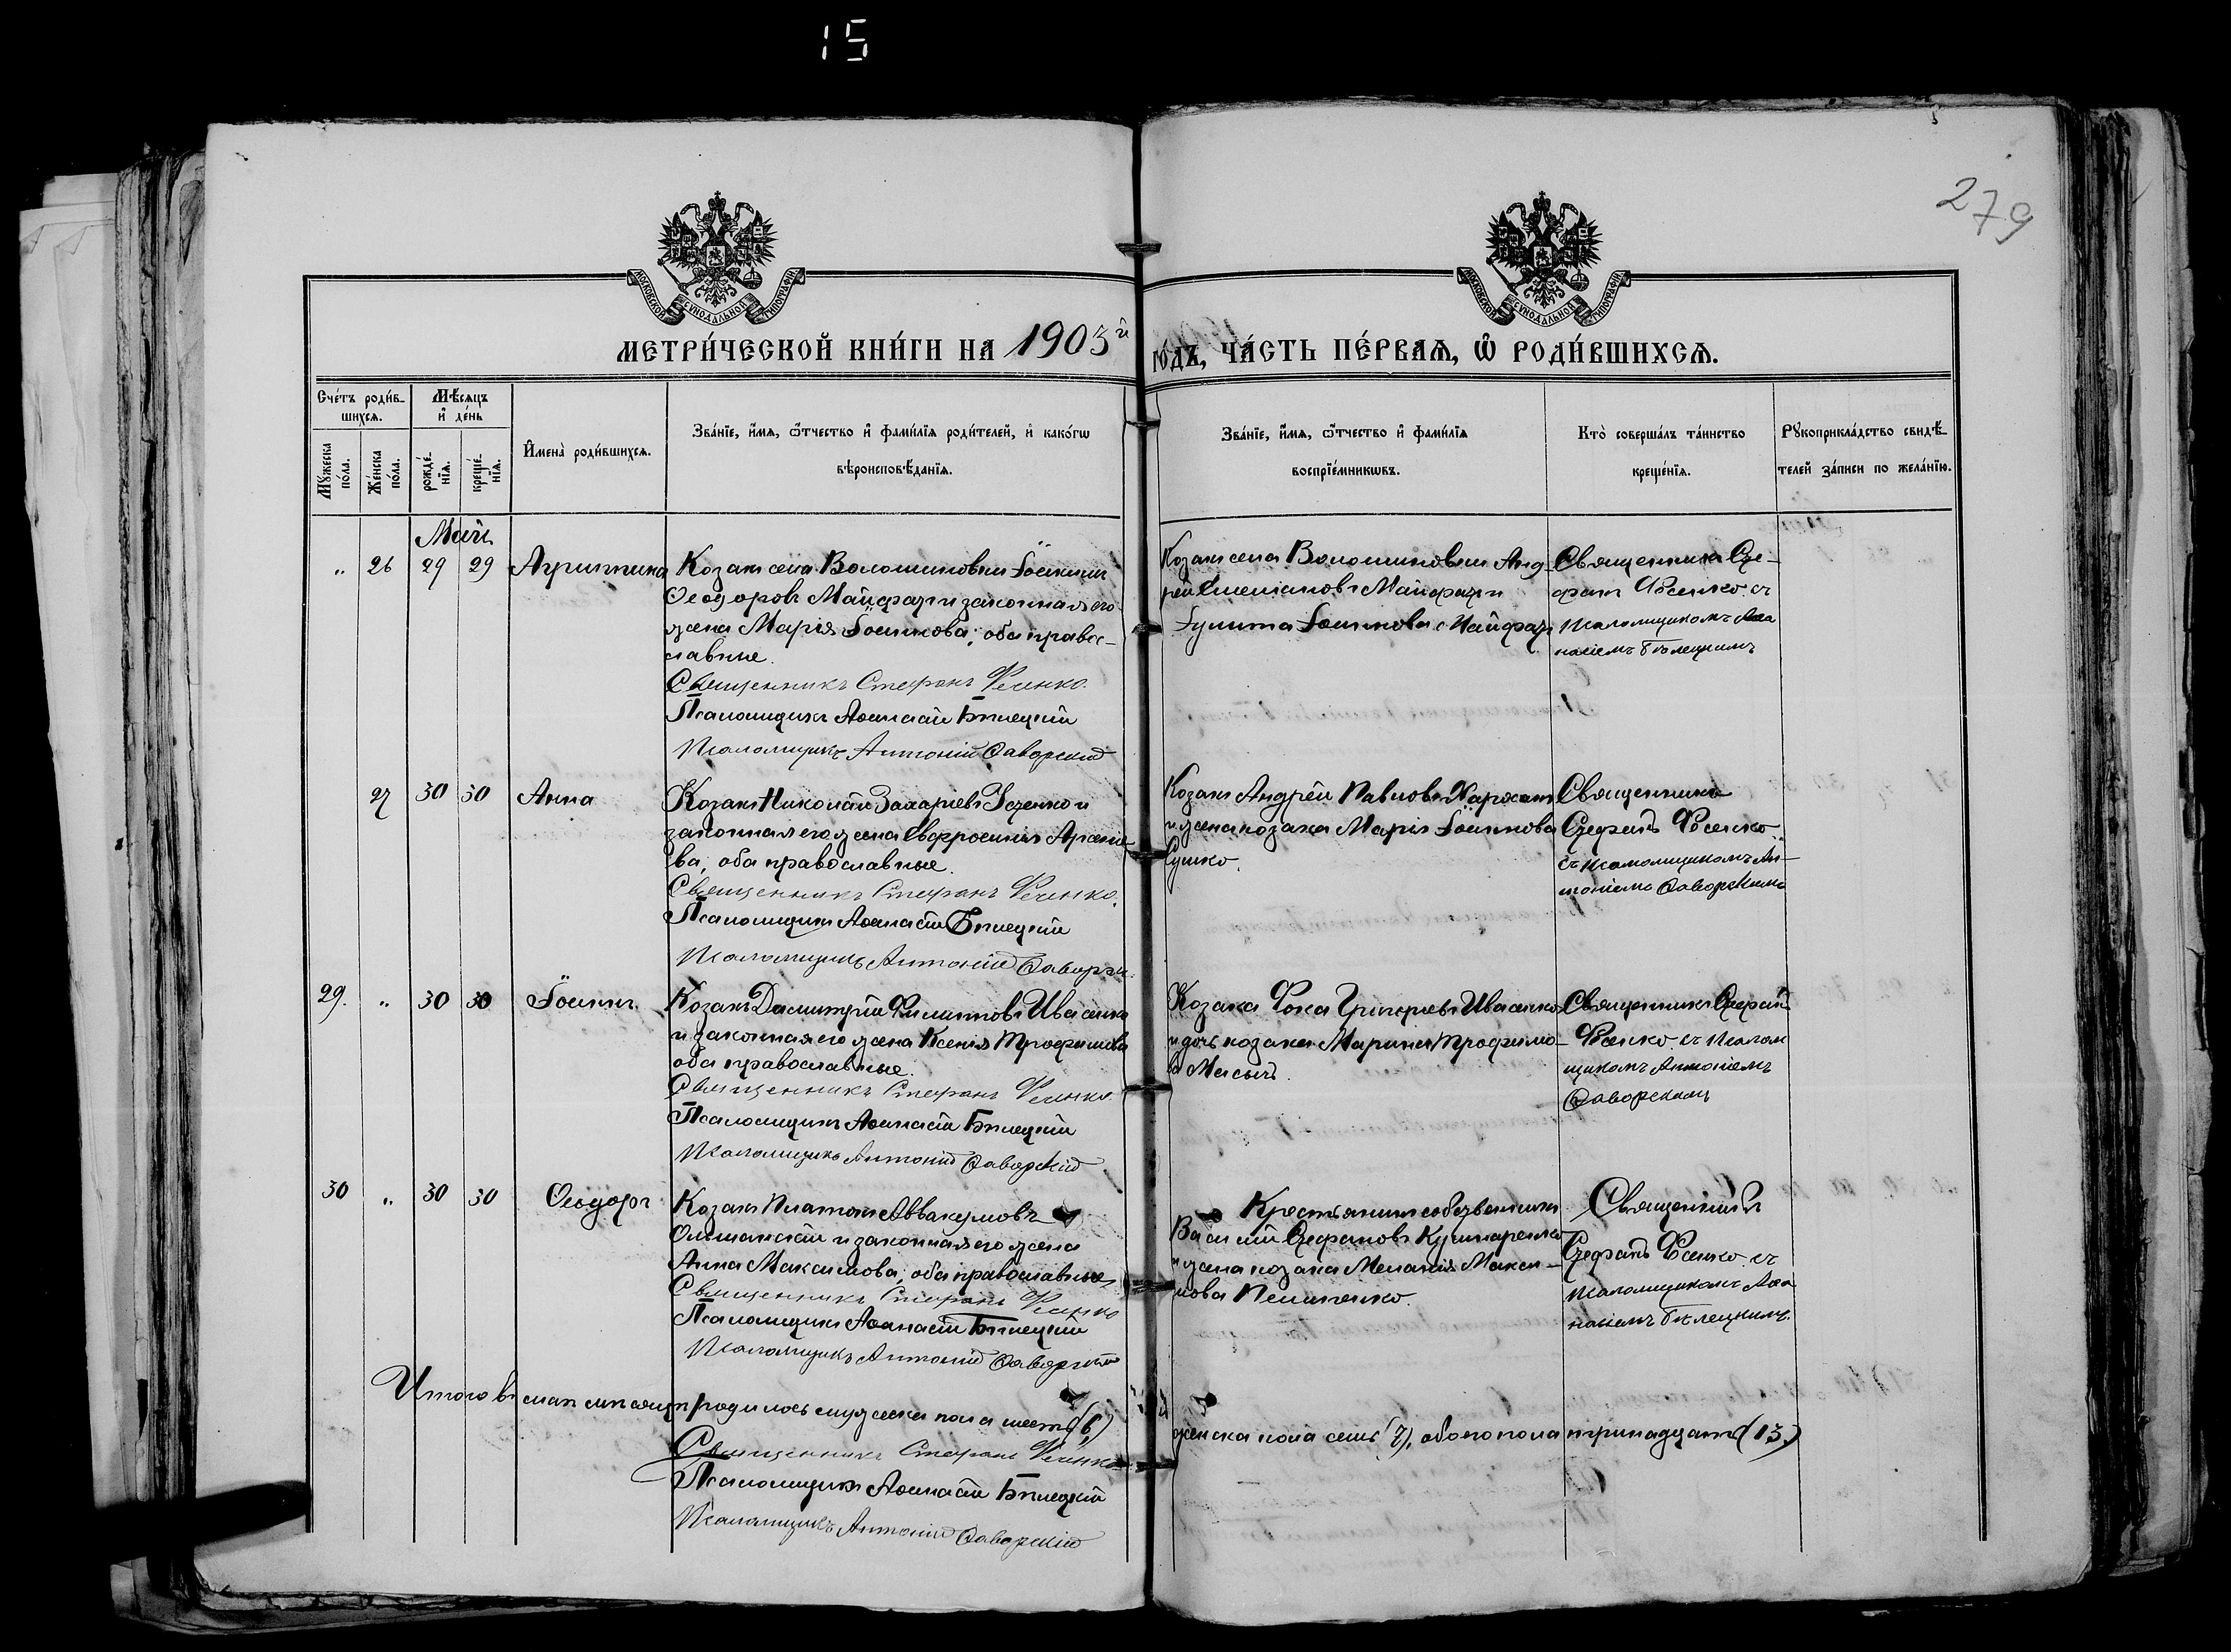 15
279
МОСКОВСКОЙ СѴНОДАЛЬНОЙ ТИПОГРАФІИ
МОСКОВСКОЙ СѴНОДАЛЬНОЙ ТИПОГРАФІИ
МЕТРИ́ЧЕСКОЙ КНИ́ГИ НА 1903й го́дъ, ЧА́СТЬ ПЕ́РВАѦ, Ѽ РОДИ́ВШИХСѦ.
Сче́тъ роди́в-
шихсѧ.
Мꙋ́жеска по́ла.
Же́нска по́ла.
Мѣ́сѧцъ
и҆ де́нь
рожде́-
нїѧ.
креще́-
нїѧ.
И҆мена̀ роди́вшихсѧ.
Зва́нїе, и҆́мѧ, ѻ҆́тчество и҆ фами́лїѧ роди́телей, и҆ како́гѡ
вѣроисповѣ́данїѧ.
Зва́нїе, и҆́мѧ, ѻ҆́тчество и҆ фами́лїѧ
воспрїе́мникѡвъ.
Кто̀ соверша́лъ та́инство
креще́нїѧ.
Рꙋкоприкла́дство свидѣ́-
телей за́писи по жела́нїю.
Май
„ 26 29 29 Агриппина
Козакъ села Волошиновки Іоаннъ
Ѳеодоровъ Майфатъ и законная его
жена Марія Іоаннова; оба право-
славные.
Священникъ Стефанъ Фесенко.
Псаломщикъ Аѳанасій Бѣлецкій
Псаломщикъ Антоній Яворскій
Козакъ села Волошиновки Анд-
рей
Іоаннова Майфатъ
Священникъ Сте-
фанъ Фесенко съ
псаломщикомъ Аѳа
насіемъ Бѣлецкимъ
27 30 30 Анна
Козакъ Николай Захаріевъ Усенко и
законная его жена Евфросинія Арсенie-
ва; оба православные.
Священникъ Стефанъ Фесенко.
Псаломщикъ Аѳанасій Бѣлецкій
Псаломщикъ Антоній
Козакъ Андрей Павловъ
и жена козака Марія Іоаннова
Сушко.
Священникъ
Стефанъ Фесенко
съ псаломщикомъ Ан-
тоніемъ
29. „ 30 30 Іоаннъ
Козакъ Димитрій Филипповъ Ивасенко
и законная его жена Ксенія Трофимова
оба православные.
Священникъ Стефанъ Фесенко.
Псаломщикъ Аѳанасій Бѣлецкій
Псаломщикъ Антоній
Козакъ Фока Григорьевъ Ивасенко
и дочь козака Марина Трофимо-
ва
Священникъ Стефанъ
Фесенко съ псалом
щикомъ Антоніемъ
30 „ 30 30 Ѳеодоръ
Козакъ Платонъ Аввакумовъ
Ольшанскій и законная его жена
Анна Максимова; оба православные
Священникъ Стефанъ Фесенко
Псаломщикъ Аѳанасій Бѣлецкій
Псаломщикъ Антоній
Крестьянинъ собственникъ
Василій Стефановъ Кушнаренко
и жена козака Меланія Макси-
мова Пелипенко.
Священникъ
Стефанъ Фесенко съ
псаломщикомъ Аѳа
насіемъ Бѣлецкимъ.
Итого въ маѣ мѣсяцѣ родилось мужеска пола шесть (6)
женска пола семь (7), обоего пола тринадцать (13.)
Священникъ Стефанъ Фесенко
Псаломщикъ Аѳанасій Бѣлецкій
Псаломщикъ Антоній